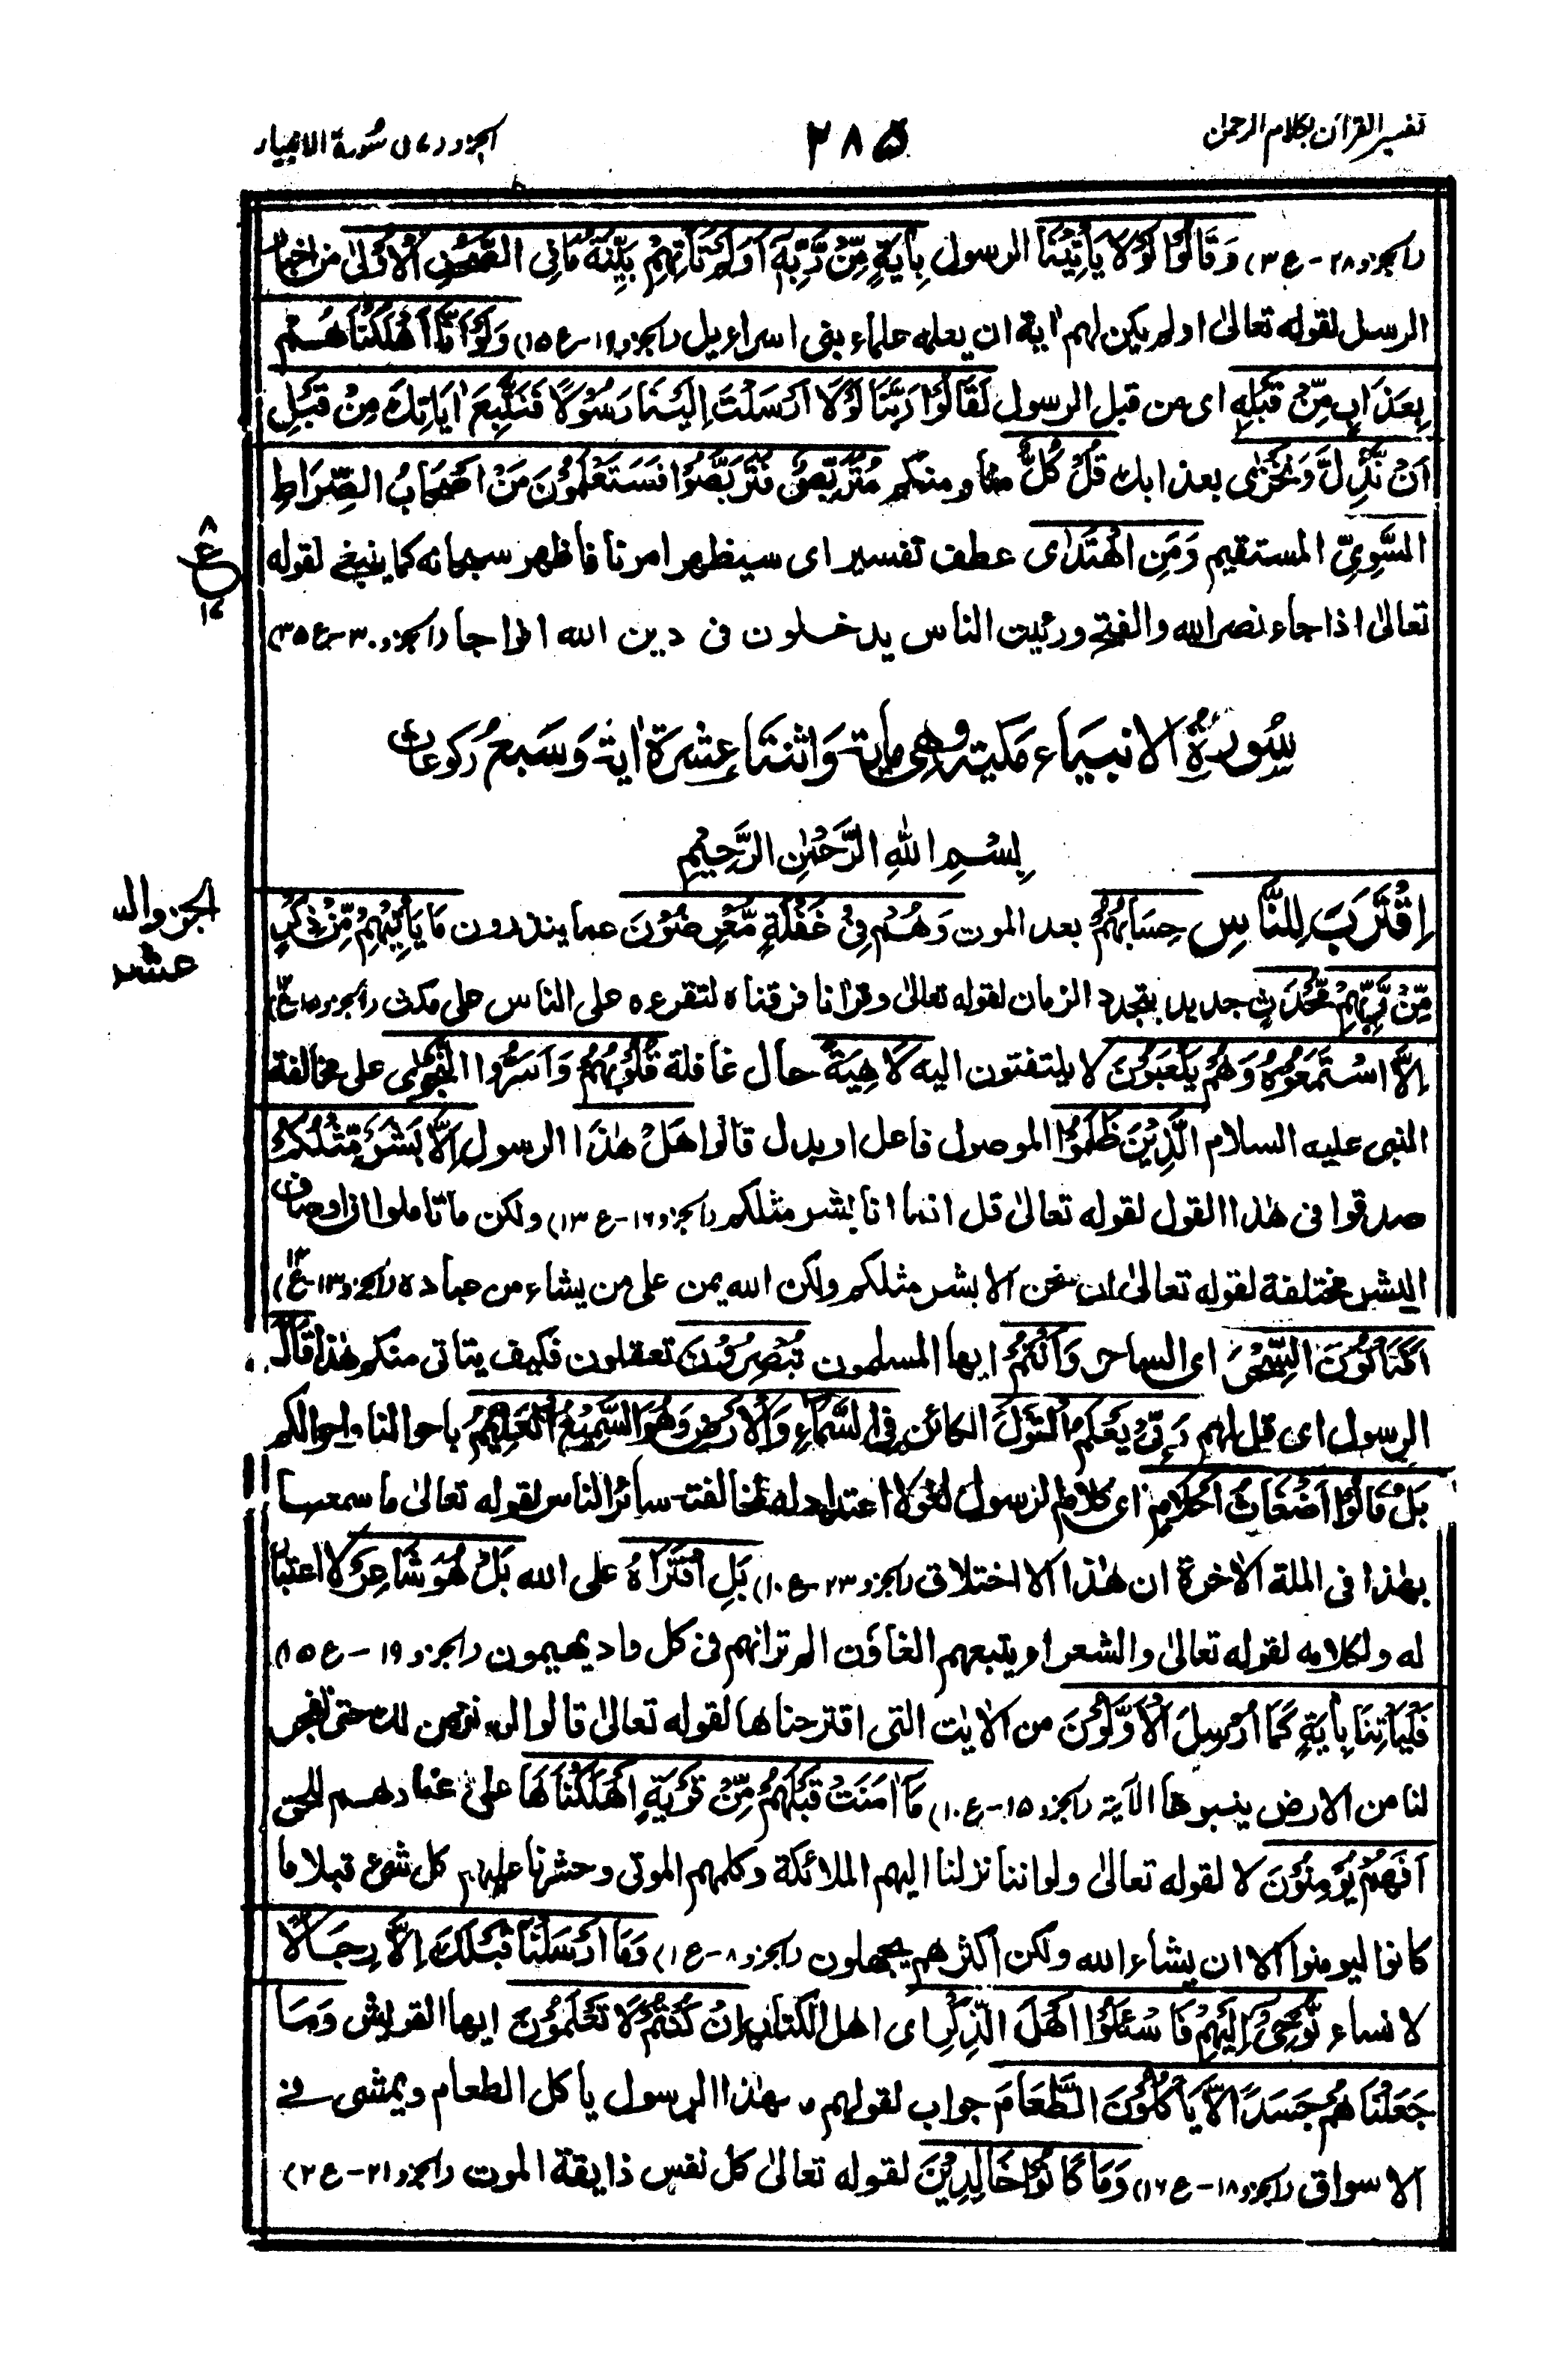 تفسير القرآن بكلام الرحمن
٢٨٥
الجزو (١٧) سورة الانبياء
(الجزو ٢٨ - ع ٣) وَقَالُوْا لَوْلَا يَأْتِيْنَا الرسول بِاٰيَةٍ مِّنْ رَّبِّهٖ اَوَلَمْ تَأْتِهِمْ بَيِّنَةُ مَا فِي الصُّحُفِ الْاُوْلٰى من اخبار
الرسل لقوله تعالىٰ اولم يكن لهم اٰية ان يعلمه علماء بنى اسراءيل (الجزو ١٩ - ع ١٥) وَلَوْ اَنَّا اَهْلَكْنَاهُمْ
بِعَذَابٍ مِّنْ قَبْلِهٖ اى من قبل الرسول لَقَالُوْا رَبَّنَا لَوْلَا اَرْسَلْتَ اِلَيْنَا رَسُوْلًا فَنَتَّبِعَ اٰيَاتِكَ مِنْ قَبْلِ
اَنْ نَّذِلَّ وَنَخْزٰى بعذابك قُلْ كُلٌّ منا ومنكم مُتَرَبِّصٌ فَتَرَبَّصُوْا فَسَتَعْلَمُوْنَ مَنْ اَصْحَابُ الصِّرَاطِ
السَّوِيِّ المستقيم وَمَنِ اهْتَدٰى عطف تفسير اى سيظهر امرنا فاظهر سبحانه كما ينبغى لقوله
تعالىٰ اذا جاء نصر الله والفتح ورئيت الناس يدخلون فى دين الله افواجا (الجزو ٣٠ - ع ٣٥)
٨
ع
١٧
سُورَةُ الانبيَاء مَكية وهى ماية وَاثنتَا عِشرَة اٰية وَسَبعُ رَكوعات
بِسْمِ اللهِ الرَّحْمٰنِ الرَّحِيْمِ
الجزو الس
عشر
اِقْتَرَبَ لِلنَّاسِ حِسَابُهُمْ بعد الموت وَهُمْ فِيْ غَفْلَةٍ مُّعْرِضُوْنَ عما ينذرون مَا يَأْتِيْهِمْ مِّنْ ذِكْرٍ
مِّنْ رَّبِّهِمْ مُّحْدَثٍ جديد بتجدد الزمان لقوله تعالىٰ وقراٰنا فرقناه لتقرءه على الناس على مكث (الجزو ١٥ - ع ١٢)
اِلَّا اسْتَمَعُوْهُ وَهُمْ يَلْعَبُوْنَ لا يلتفتون اليه لَاهِيَةً حال غافلة قُلُوْبُهُمْ وَاَسَرُّوا النَّجْوٰى على مخالفة
النبى عليه السلام الَّذِيْنَ ظَلَمُوْا الموصول فاعل او بدل قالوا هَلْ هٰذَا الرسول اِلَّا بَشَرٌ مِّثْلُكُمْ
صدقوا فى هٰذا القول لقوله تعالىٰ قل انما انا بشر مثلكم (الجزو ١٦ - ع ١٣) ولكن ما تاملوا ان اوصاف
البشر مختلفة لقوله تعالىٰ ان نحن الا بشر مثلكم ولكن الله يمن على من يشاء من عباده (الجزو ١٣ - ع ١٤)
اَفَتَاْتُوْنَ السِّحْرَ اى الساحر وَاَنْتُمْ ايها المسلمون تُبْصِرُوْنَ تعقلون فكيف يتاتى منكم هٰذا قَالَ
الرسول اى قل لهم رَبِّيْ يَعْلَمُ الْقَوْلَ الكائن فِي السَّمَاءِ وَالْاَرْضِ وَهُوَ السَّمِيْعُ الْعَلِيْمُ باحوالنا واحوالكم
بَلْ قَالُوْا اَضْغَاثُ اَحْلَامٍ اى كلام الرسول لغو لا اعتداد له لمخالفته سائر الناس لقوله تعالىٰ ما سمعنا
بهٰذا فى الملة الاٰخرة ان هٰذا الا اختلاق (الجزو ٢٣ - ع ١٠) بَلِ افْتَرَاهُ على الله بَلْ هُوَ شَاعِرٌ لا اعتبار
له ولكلامه لقوله تعالىٰ والشعراء يتبعهم الغاوٗن الم تر انهم فى كل واد يهيمون (الجزو ١٩ - ع ١٥)
فَلْيَأْتِنَا بِاٰيَةٍ كَمَا اُرْسِلَ الْاَوَّلُوْنَ من الاٰيٰت التى اقترحناها لقوله تعالىٰ قالوا لن نؤمن لك حتى تفجر
لنا من الارض ينبوعا الآية (الجزو ١٥ - ع ١٠) مَا اٰمَنَتْ قَبْلَهُمْ مِّنْ قَرْيَةٍ اَهْلَكْنَاهَا على عنادهم للحق
اَفَهُمْ يُؤْمِنُوْنَ لا لقوله تعالىٰ ولو اننا نزلنا اليهم الملائكة وكلمهم الموتى وحشرنا عليهم كل شىء قبلا ما
كانوا ليومنوا الا ان يشاء الله ولكن اكثرهم يجهلون (الجزو ٨ - ع ١) وَمَا اَرْسَلْنَا قَبْلَكَ اِلَّا رِجَالًا
لا نساء نُّوْحِيْ اِلَيْهِمْ فَاسْئَلُوْا اَهْلَ الذِّكْرِ اى اهل الكتاب اِنْ كُنْتُمْ لَا تَعْلَمُوْنَ ايها القريش وَمَا
جَعَلْنَاهُمْ جَسَدًا لَّا يَأْكُلُوْنَ الطَّعَامَ جواب لقولهم ما لهٰذا الرسول ياكل الطعام ويمشى فى
الاسواق (الجزو ١٨ - ع ١٦) وَمَا كَانُوْا خَالِدِيْنَ لقوله تعالىٰ كل نفس ذايقة الموت (الجزو ٢١ - ع ٢)